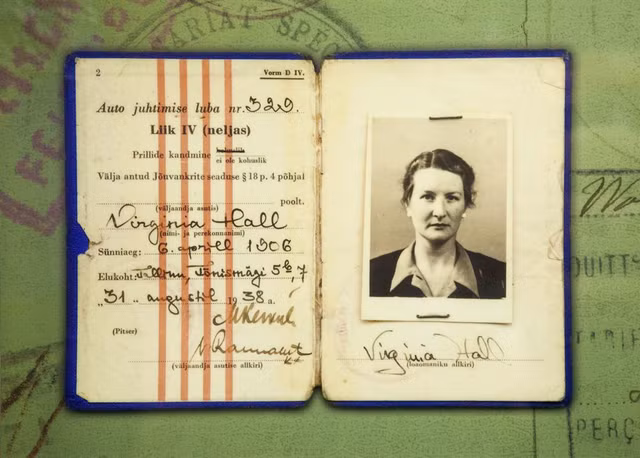 TARIAT SPEC
2
Vorm D IV.
Auto juhtimise luba nr. 329.
Liik IV (neljas)
Prillide kandmine kohuslik
ei ole kohuslik
Välja antud Jõuvankrite seaduse § 18 p. 4 põhjal
poolt.
(väljaandja asutis)
Virginia Hall
(nimi- ja perekonnanimi)
Sünniaeg: 6. aprill 1906
Elukoht: Tallinn, Tõnismägi 5b, 7
„31„ augustil 1938 a.
(Pitser)
(väljaandja asutise allkiri)
Virginia Hall
(loaomaniku allkiri)
TARIF
PERÇ